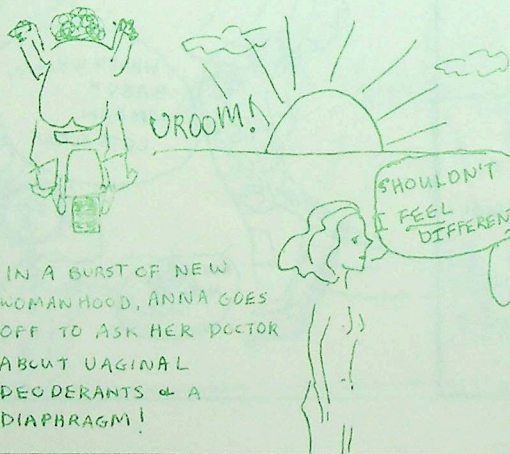 VROOM!
SHOULDN'T
I FEEL
DIFFEREN
IN A BURST OF NEW
WOMANHOOD, ANNA GOES
OFF TO ASK HER DOCTOR
ABOUT VAGINAL
DEODERANTS & A
DIAPHRAGM!